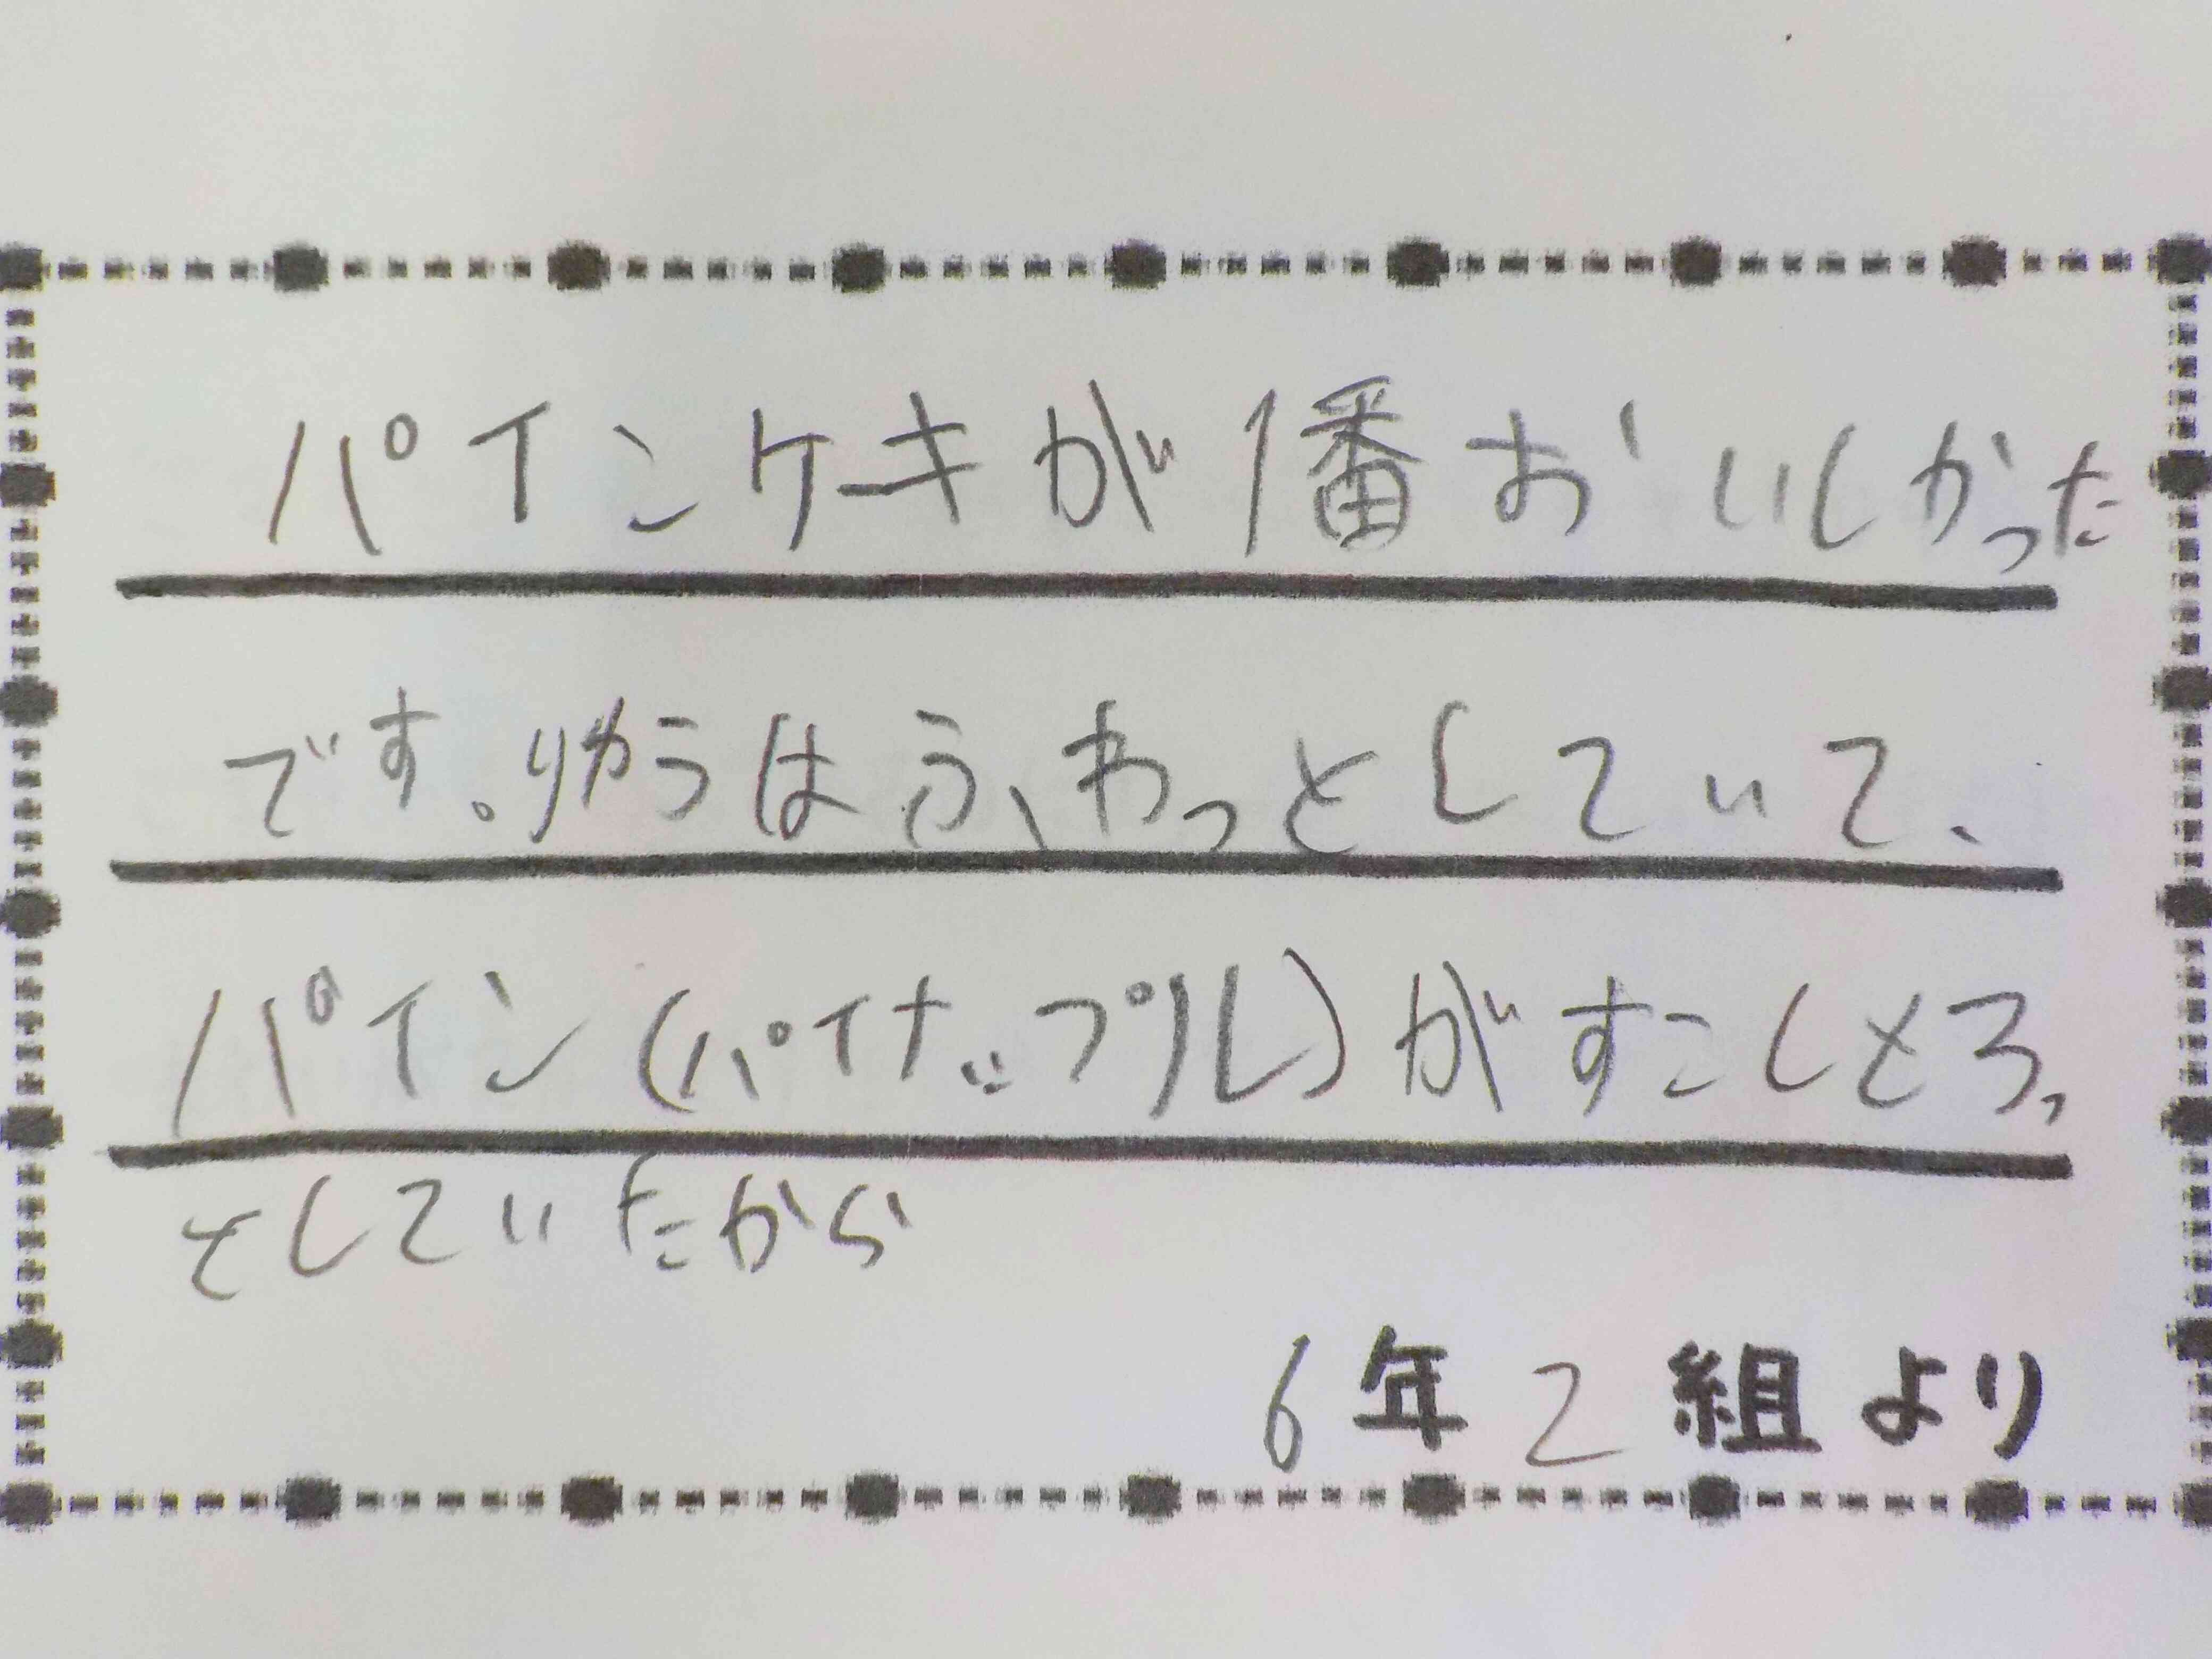 パインケーキが1番おいしかった
です。りゆうはふわっとしていて、
パイン(パイナップル)がすこしとろっ
としていたから
6年2組より